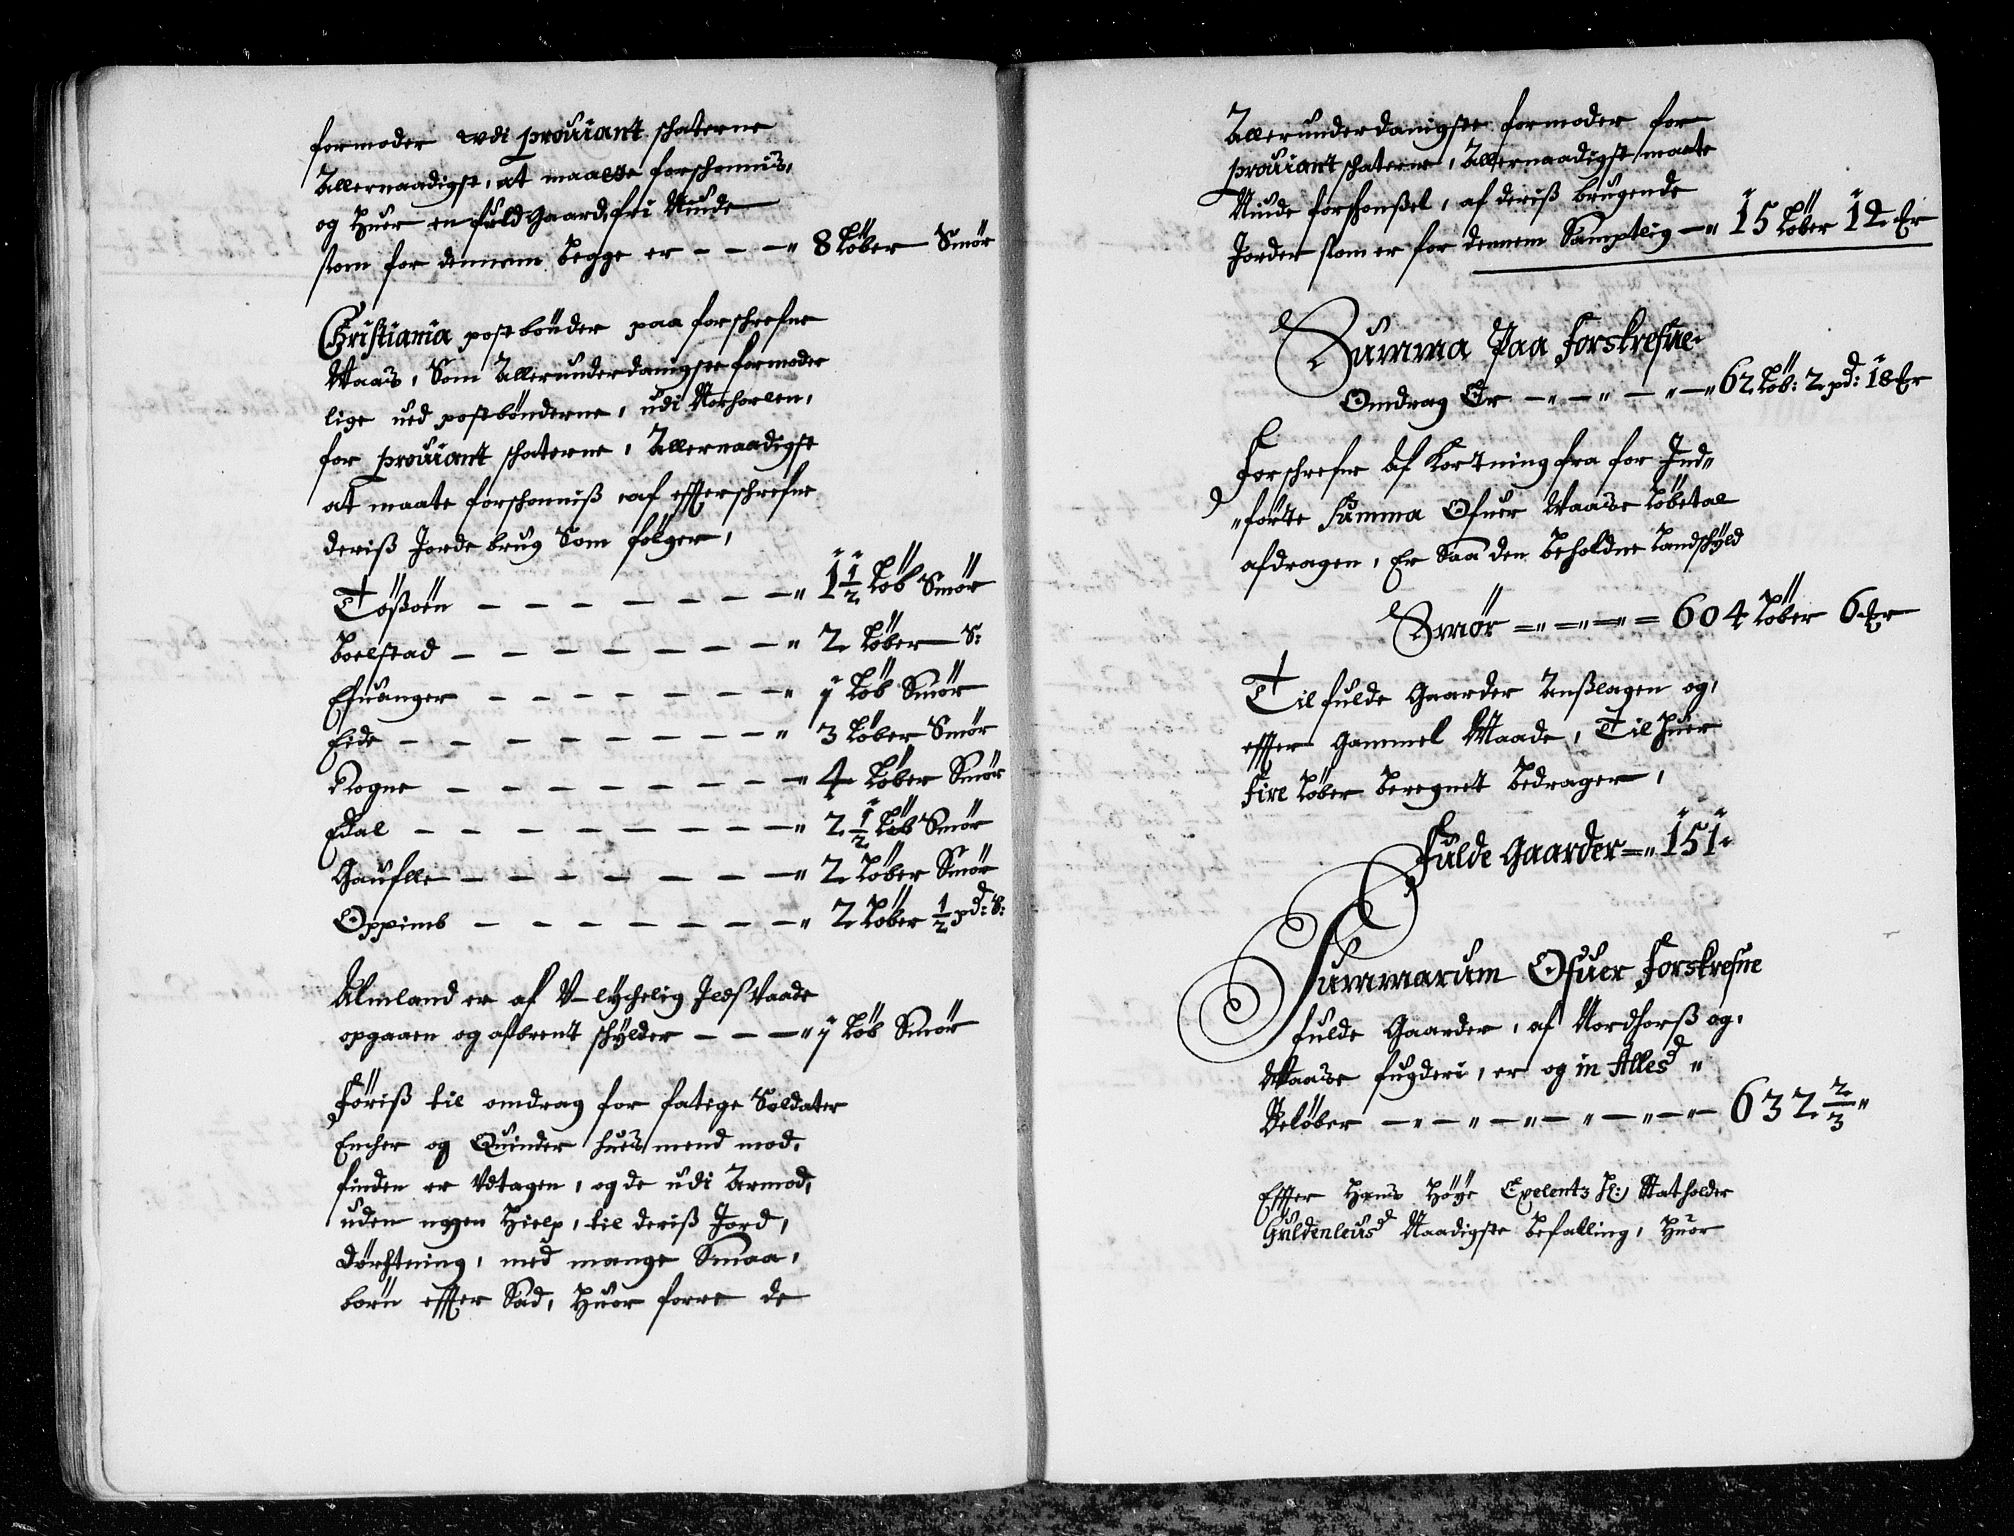 formoder udi prouiant schaterne
Allernaadigst, at maatte forschonnis,
og Huer en fuld Gaard, fri Niude
som for dennem begge er — — — „ 8 Løber Smør
Christiania postbønder paa forschrefne
Waas, Som Allerunderdanigste formoder
lige ued postbønderne, udi
for prouiant schaterne, Allernaadigst
at maate forschonniß af effterschrefne
deriß Jorde brug Som følger,
Tößöen — — — — — — — „ 1 1/2 Løb Smør
Boelstad — — — — — — — „ 2 Løber S:
Efuanger — — — — — — — „ 1 Løb Smør
Eide — — — — — — — — „ 3 Løber Smør
Rogne — — — — — — — — „ 4 Løber Smør
Edal — — — — — — — — „ 2 1/2 Løb Smør
Gauflle — — — — — — — „ 2 Løber Smør
Oppimb — — — — — — — „ 2 Løber 1/2 pd: S:
Almland er af V-lychelig JldsVaade
opgaaen og afbrent schylder — — — „ 1 Løb Smør
Føriß til omdrag for fatige Soldater
Encher og Quinder huesmend mod,
finden er Vdtagen, og de udi Armod,
uden nogen Hielp, til deriß Jord,
dørchtning, med mange Smaa,
børn effter Sad, Huor forre de
Allerunderdanigste formoder for
prouiant schaterne, Allernaadigst maate
Niude forschonßel, af deriß brugende
Jorder som er for dennem Samptlig — „ 15 Løber 12 Er
Summa Paa Forskrefne
Omdrag Er — „ — „ — „ — „ 62 Løb: 2 pd: 18 Er
Forschrefne Af Kortning fra for Ind„
„førte Summa Ofuer Waase Løbetal
afdragen, Er Saa den beholdne Landschyld
Smør = „ = „ = „ = 604 Løber 6 Er
Til fulde Gaarder Anßlagen og,
effter Gammel Maade, Til huer
Fire Løber beregnet bedrager,
Fulde Gaarder = „ 151 „
Summarum Ofuer Forskrefne
fulde Gaarder, af Nordhorß og,
Waase fugderi, er og in Alles „
Beløber — „ — „ — „ — „ — „ — „ — 632 2/3 „
Effter Hans Høye Exelentz H: Statholder
Guldenleus Naadigste befalling, Huor